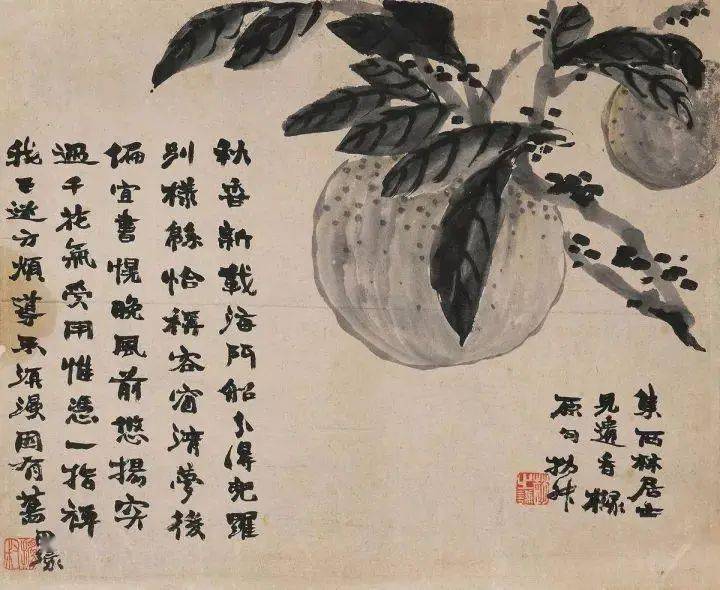 秋香新載海船得兜羅
別樣綿恰稱客窗清夢後
偏宜書幌晚風前揚突
過千花氣受用惟憑一指禪
我正迷方煩導須有舊
集西林居士
見遺香櫞
原句